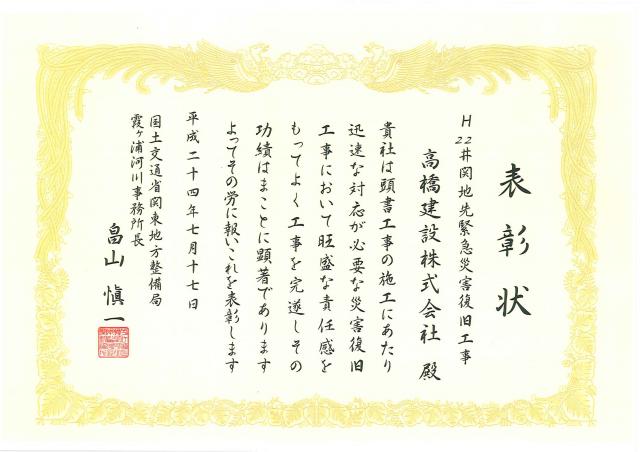 表彰状
H22井関地先緊急災害復旧工事
高橋建設株式会社 殿
貴社は頭書工事の施工にあたり
迅速な対応が必要な災害復旧
工事において旺盛な責任感を
もってよく工事を完遂しその
功績はまことに顕著であります
よってその労に報いこれを表彰します
平成二十四年七月十七日
国土交通省関東地方整備局
霞ヶ浦河川事務所長
畠山愼一